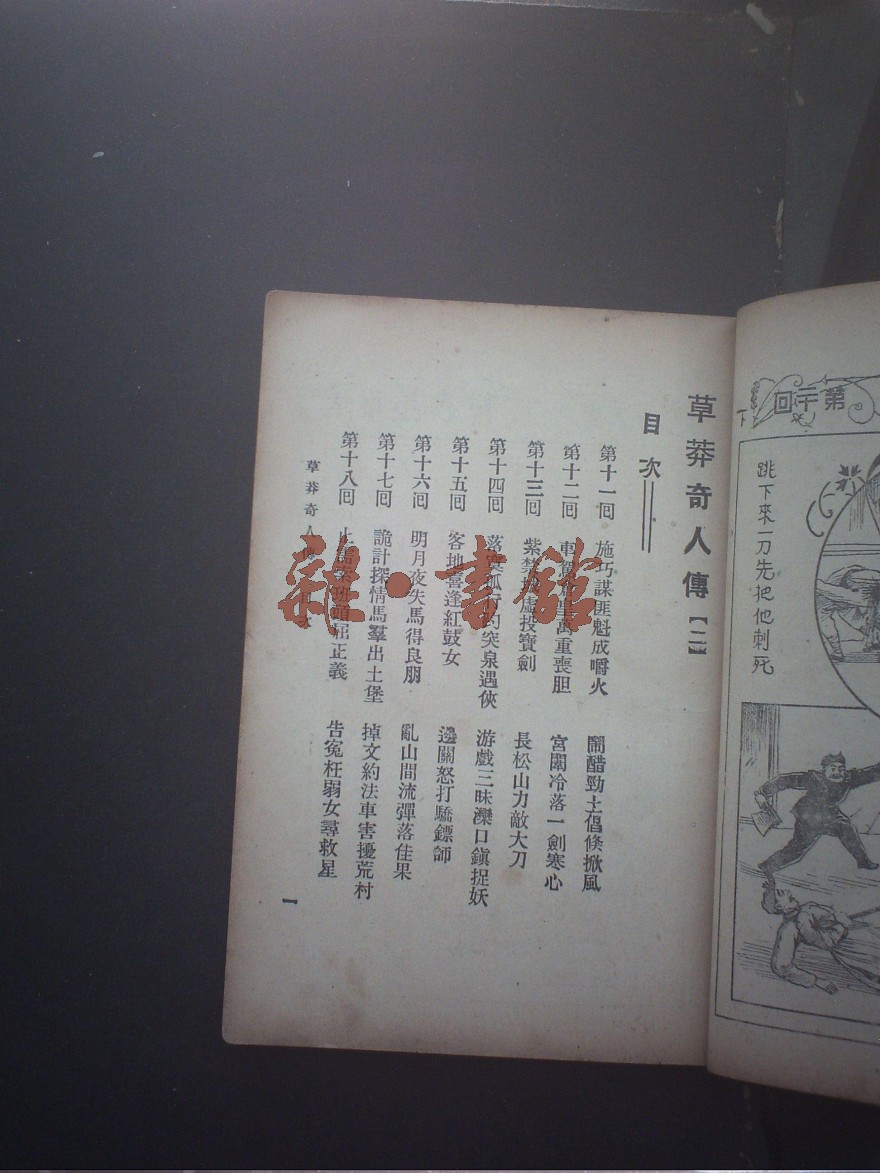 第二十回
下
跳下來一刀先把他刺死
草莽奇人傳【二】
目次
第十一囘 施巧謀匪魁成嚼火 鬧醋勁土倡倏掀風
第十二囘 萬重喪胆 宮闈冷落一劍寒心
第十三囘 紫禁城虛投寶劍 長松山力敵大刀
第十四囘 落寞孤行趵突泉遇俠 游戲三昧灤口鎮捉妖
第十五囘 客地喜逢紅鼓女 邊關怒打驕鏢師
第十六囘 明月夜失馬得良朋 亂山間流彈落佳果
第十七囘 詭計探情馬羣出土堡 掉文約法車害擾荒村
第十八囘 屈正義 告寃枉弱女尋救星
草莽奇人傳 目次
一
雜·書館